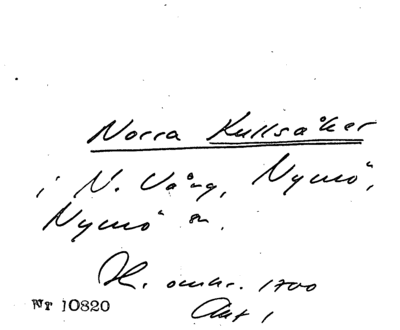 Norra Kullsåker
i N. Vång, Nymö,
Nymö sn.
H. omkr. 1700
Akt 1
Nr 10820